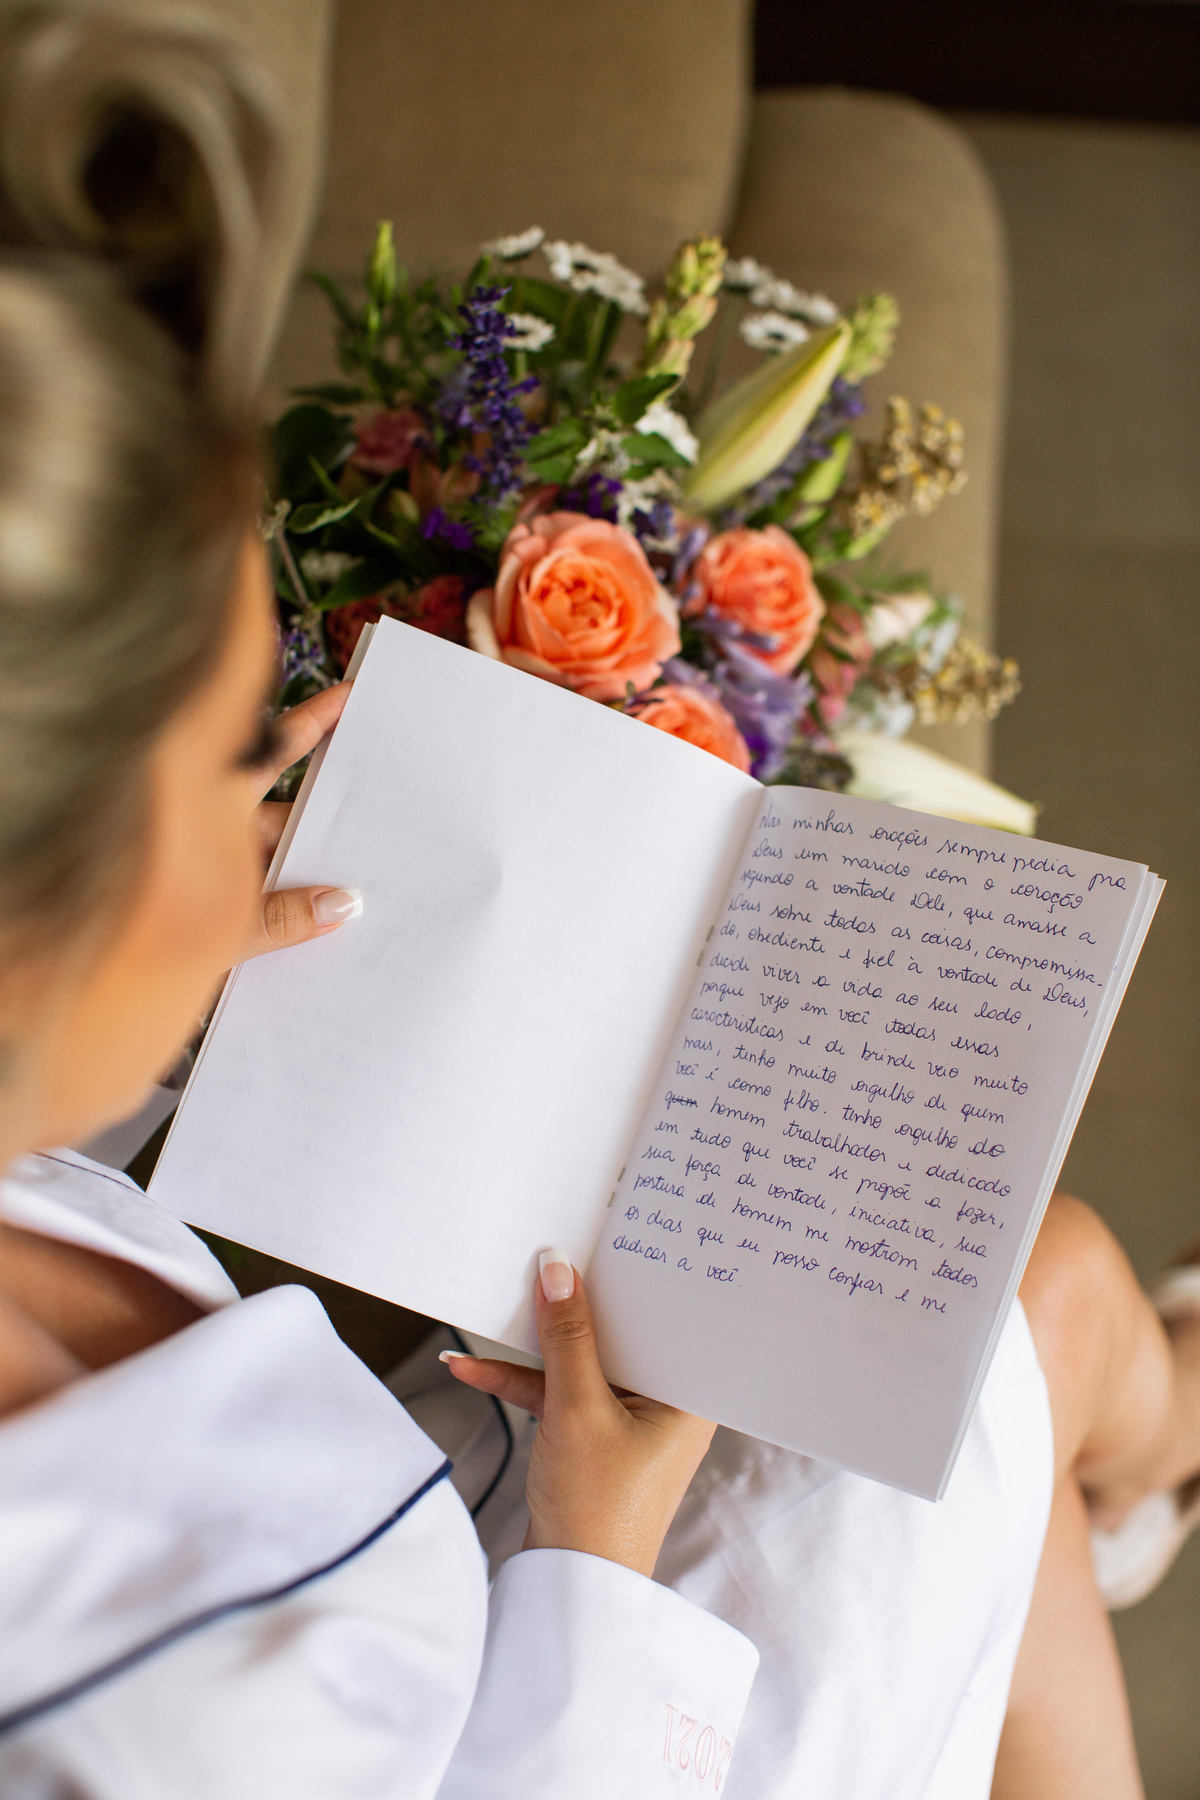 Nas minhas orações sempre pedia pra
Deus um marido com o coração
segundo a vontade Dele, que amasse a
Deus sobre todas as coisas, compromissa-
do, obediente e fiel à vontade de Deus,
decidi viver a vida ao seu lado,
porque vejo em você todas essas
características e de brinde veio muito
mais, tenho muito orgulho de quem
você é como filho. tenho orgulho do
quem homem trabalhador e dedicado
em tudo que você se propõe a fazer,
sua força de vontade, iniciativa, sua
postura de homem me mostram todos
os dias que eu posso confiar e me
dedicar a você.
2021